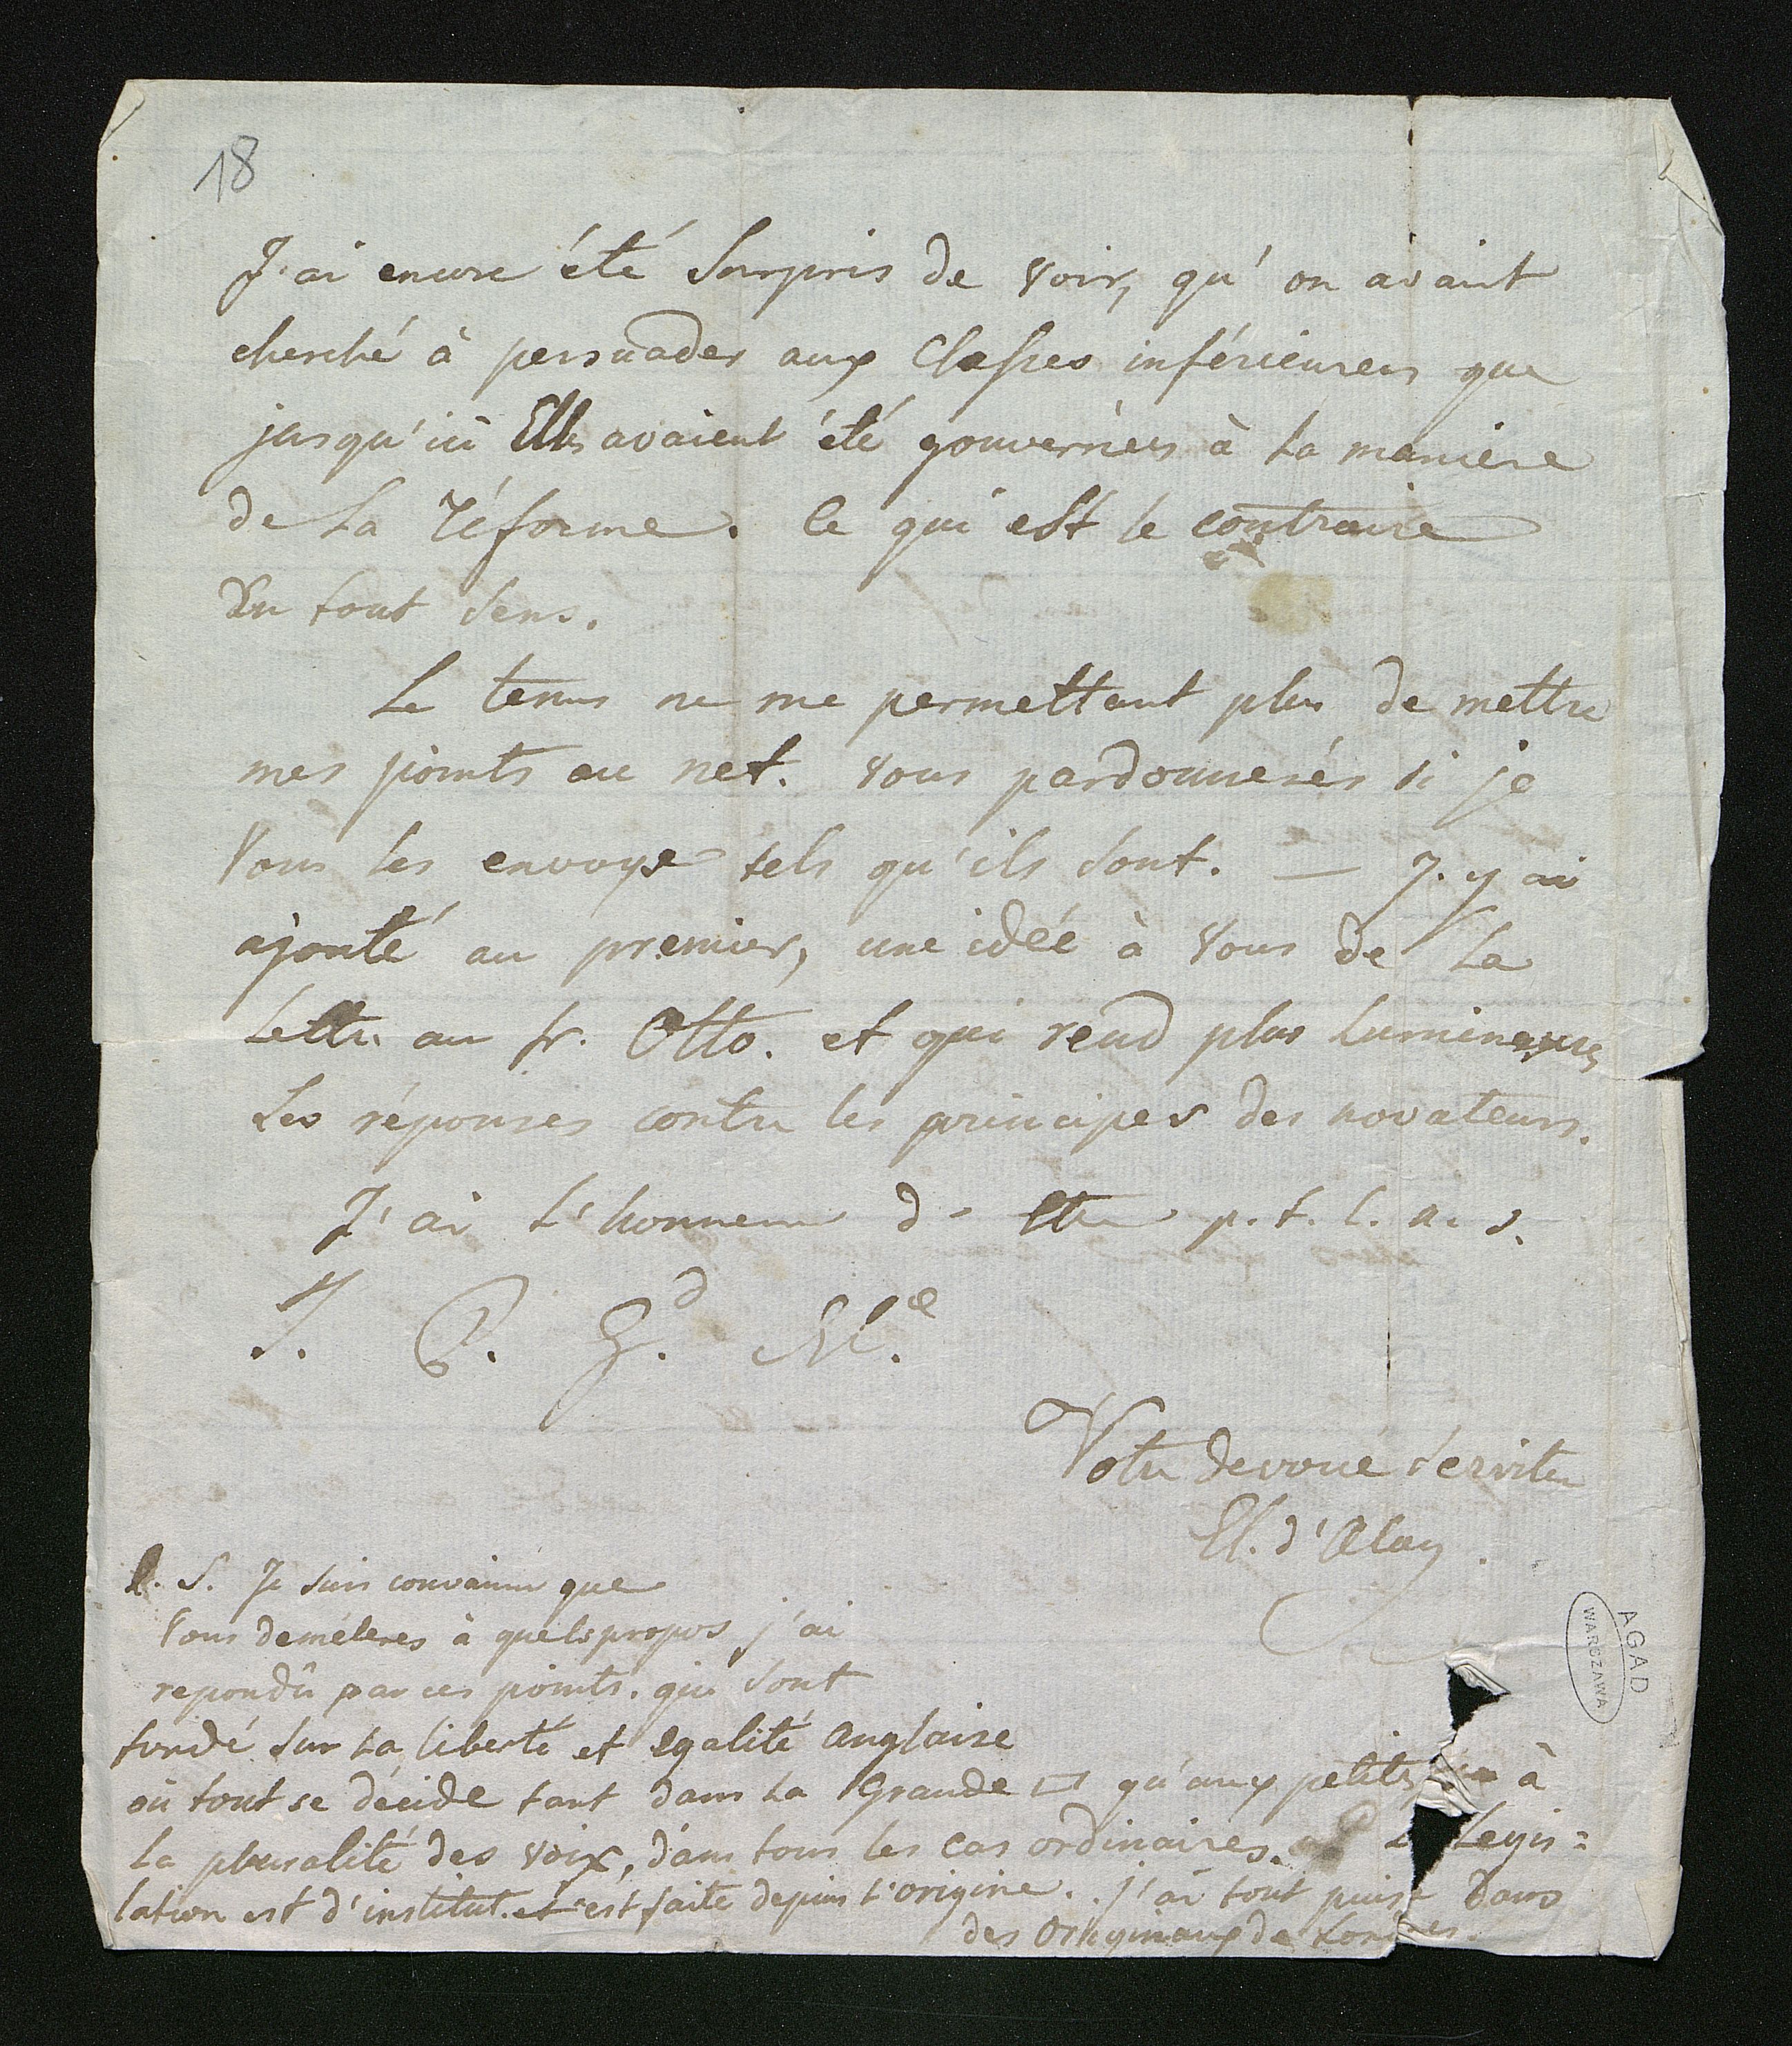 18
J'ai encore été surpris de voir, qu'on avait
cherché à persuader aux Classes inférieures que
jusqu'ici Elles avaient été gouvernées à la maniere
de la réforme. Ce qui est le contraire
En tout sens.
Le tems ne me permettant plus de mettre
mes points au net. vous pardonnerés si je
vous les envoye tels qu'ils sont. — J. y ai
ajouté au premier, une idée à vous de la
lettre au fr. Otto. et qui rend plus lumineuses
les réponses contre les principes des novateurs.
J'ai l'honneur d'etre p. t. l. n. s.
T. C. G.d M.e
Votre devoué serviteur
El. d'Aloy.
P. S. Je suis convaincu que
vous demêleres à quels propos j'ai
repondû par ces points. qui sont
fondé sur la liberté et egalité anglaise
où tout se décide tant dans la Grande ▭ qu'aux petites à
la pluralité des voix, dans tous les cas ordinaires. La Legis=
lation est d'institut. et est faite depuis l'origine. j'ai tout puisé dans
des Originaux de Londres.
AGAD
WARSZAWA